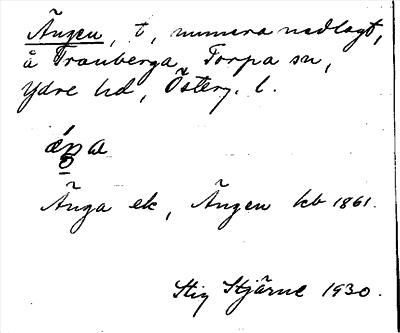 Ängen, t, numera nedlagt,
å Tranberga, Torpa sn,
Ydre hd, Österg. l.
Änga ek, Ängen kb 1861.
Stig Stjärne 1930.